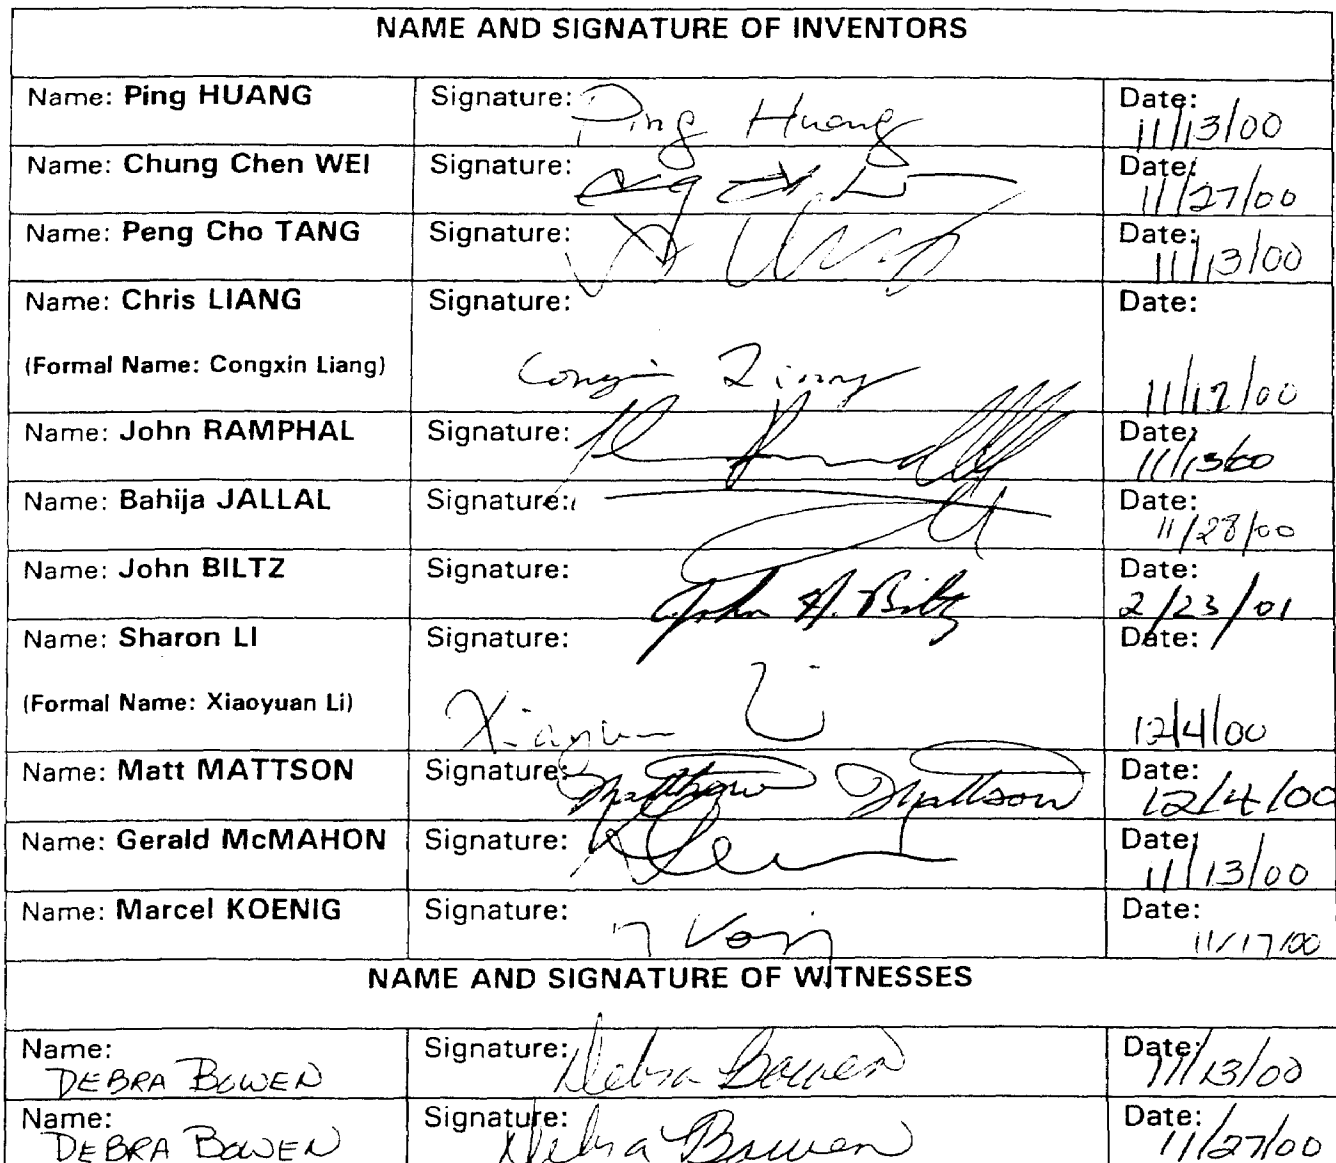 NAME AND SIGNATURE OF INVENTORS
Name: Ping HUANG Signature: Ping Huang Date: 11/13/00
Name: Chung Chen WEI Signature: Date: 11/27/00
Name: Peng Cho TANG Signature: Date: 11/13/00
Name: Chris LIANG Signature: Date:
(Formal Name: Congxin Liang) Congxin Liang 11/17/00
Name: John RAMPHAL Signature: Date: 11/13/00
Name: Bahija JALLAL Signature: Date: 11/28/00
Name: John BILTZ Signature: John A. Biltz Date: 2/23/01
Name: Sharon LI Signature: Date:
(Formal Name: Xiaoyuan Li) Xiaoyuan Li 12/4/00
Name: Matt MATTSON Signature: Matthew Mattson Date: 12/4/00
Name: Gerald McMAHON Signature: Date: 11/13/00
Name: Marcel KOENIG Signature: Date: 11/17/00
NAME AND SIGNATURE OF WITNESSES
Name: DEBRA BOWEN Signature: Debra Bowen Date: 11/13/00
Name: DEBRA BOWEN Signature: Debra Bowen Date: 11/27/00